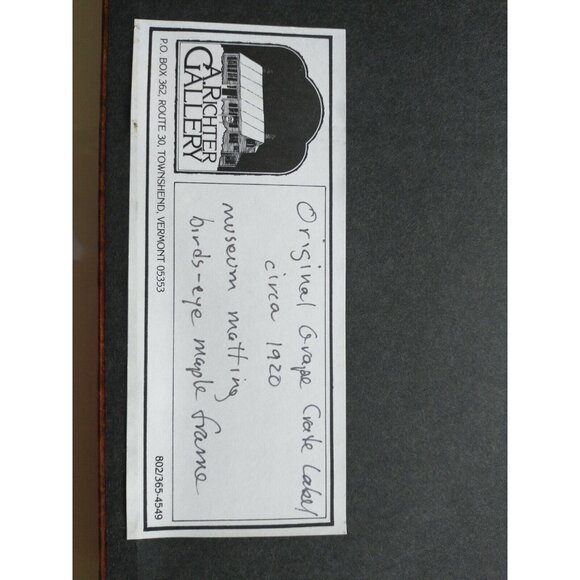 A. RICHTER
GALLERY
P.O. BOX 362, ROUTE 30, TOWNSHEND, VERMONT 05353
802/365-4549
Original Grape Crate Label
circa 1920
museum matting
birds-eye maple frame